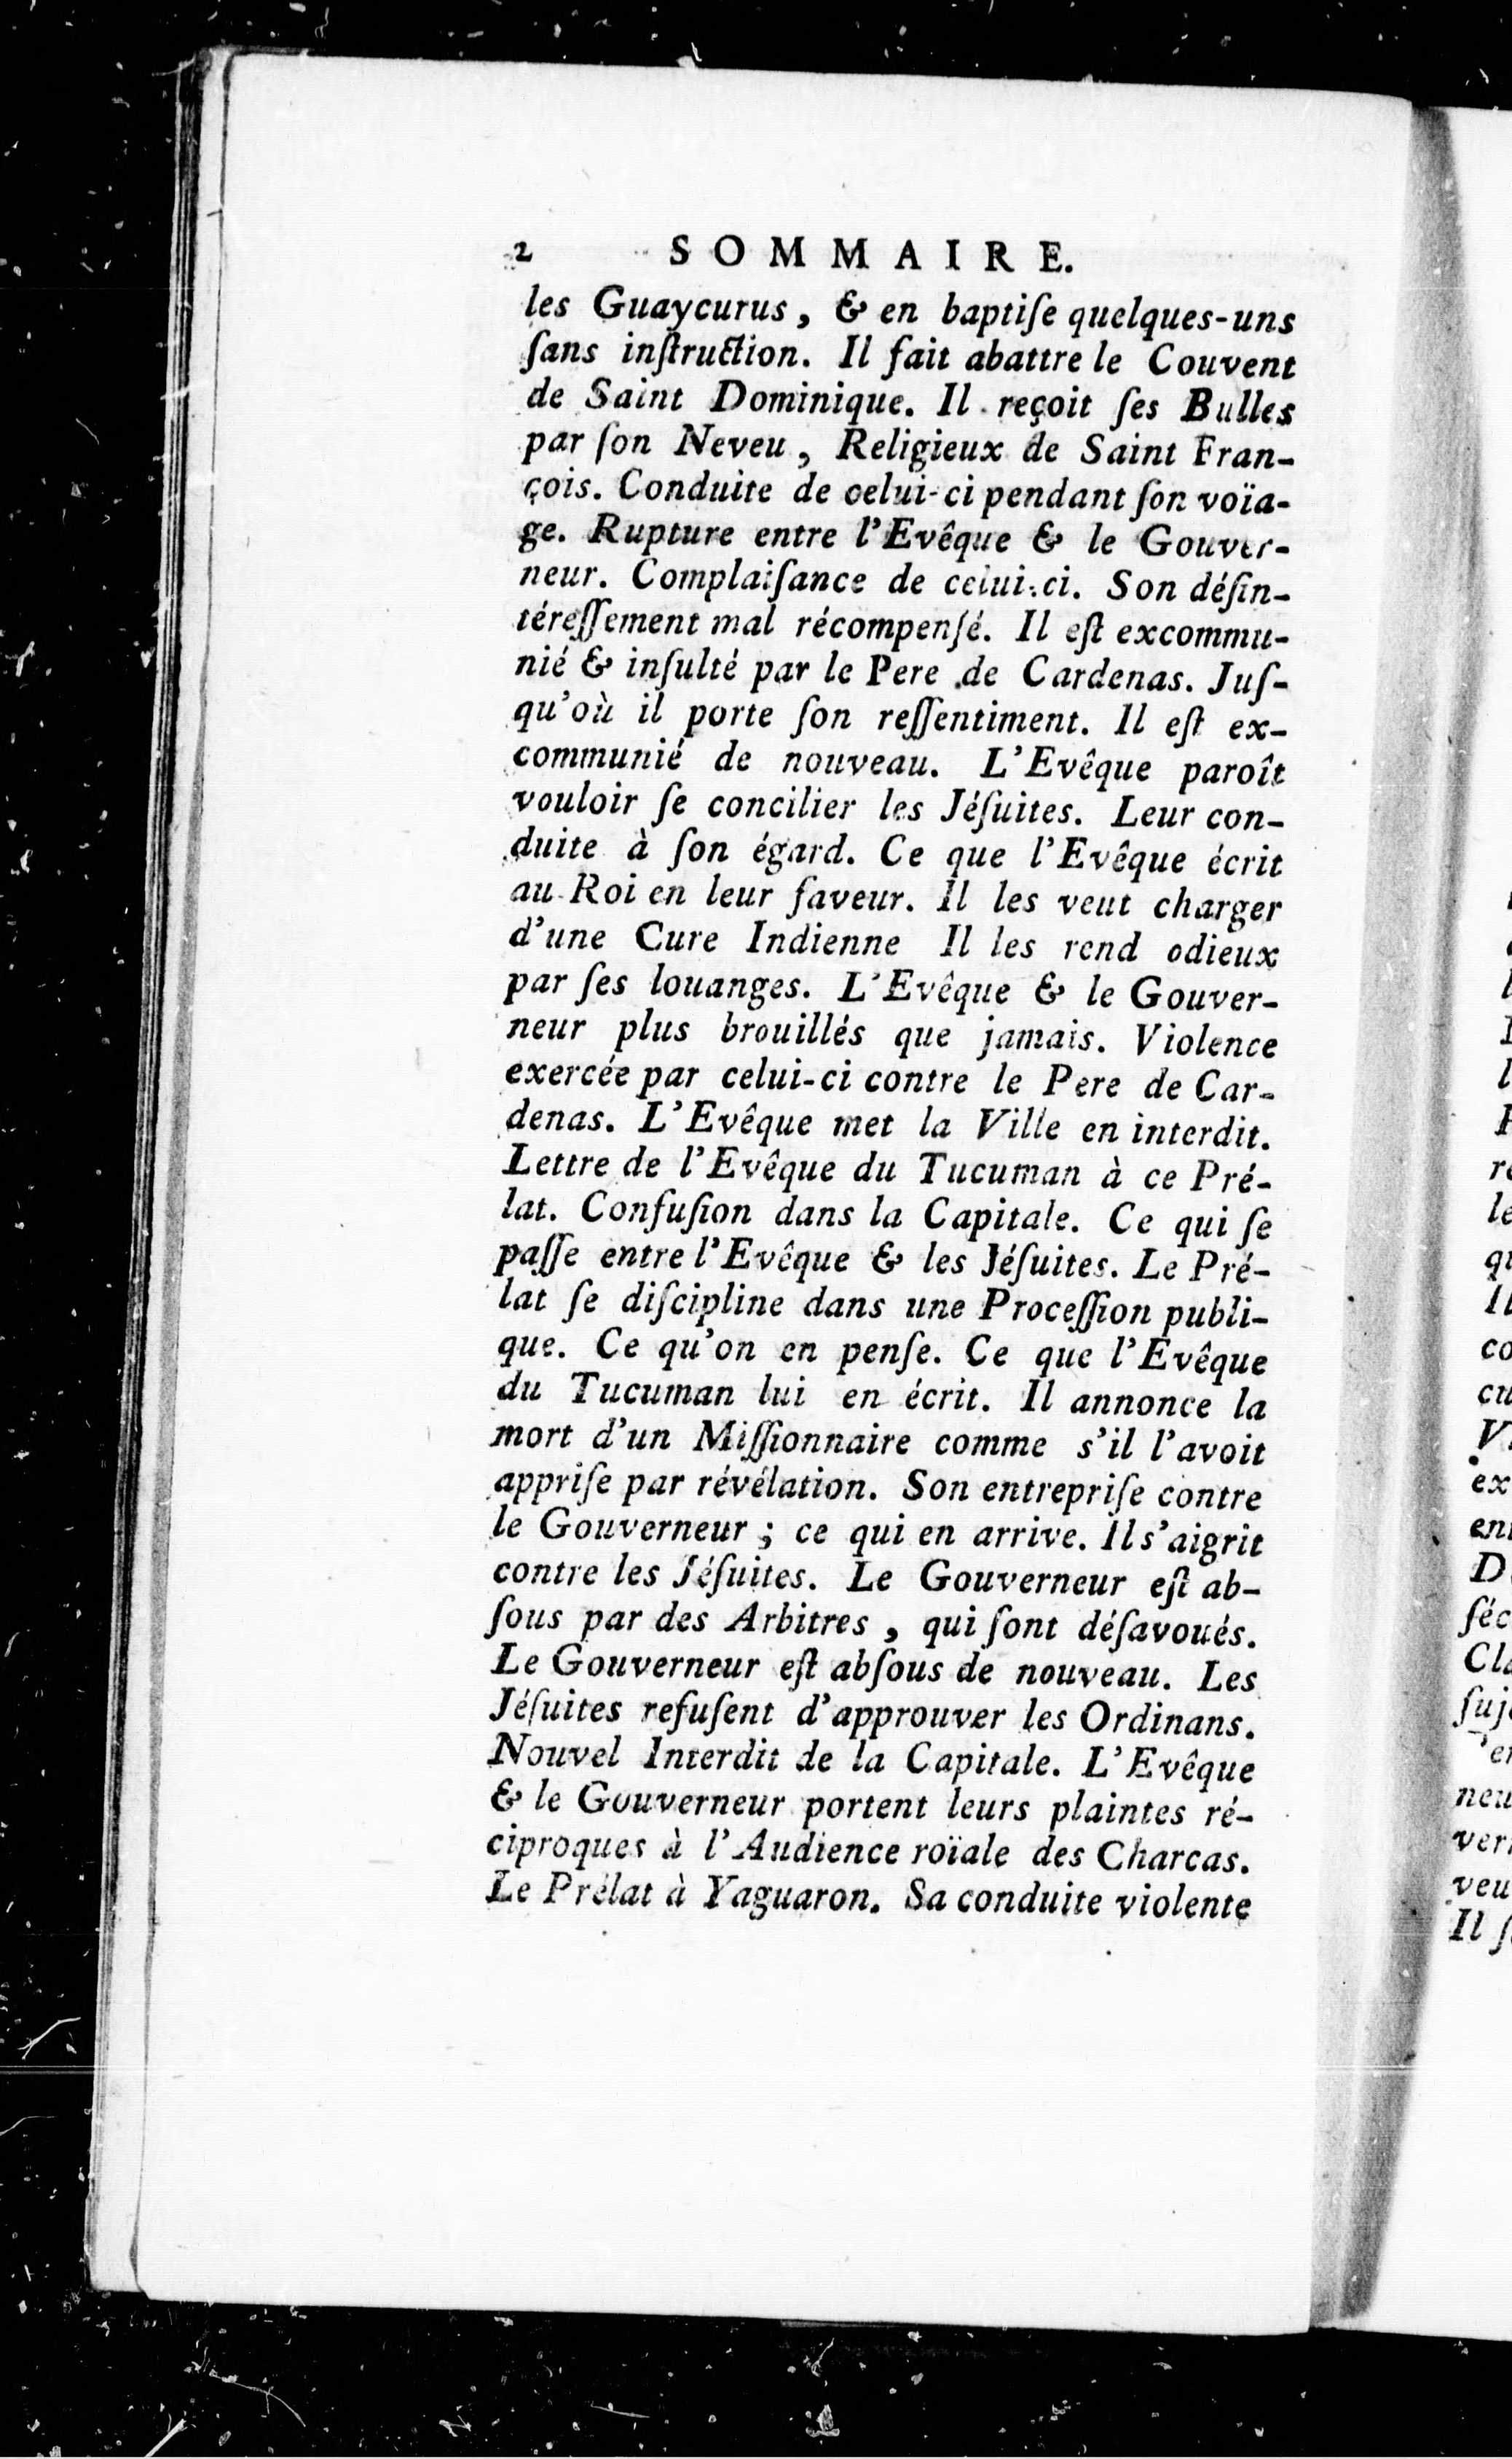 2 SOMMAIRE.
les Guaycurus, & en baptiſe quelques-uns
ſans inſtruction. Il fait abattre le Couvent
de Saint Dominique. Il reçoit ſes Bulles
par ſon Neveu, Religieux de Saint Fran-
çois. Conduite de celui-ci pendant ſon voïa-
ge. Rupture entre l'Evêque & le Gouver-
neur. Complaiſance de celui-ci. Son déſin-
téreſſement mal récompenſé. Il eſt excommu-
nié & inſulté par le Pere de Cardenas. Juſ-
qu'où il porte ſon reſſentiment. Il eſt ex-
communié de nouveau. L'Evêque paroît
vouloir ſe concilier les Jéſuites. Leur con-
duite à ſon égard. Ce que l'Evêque écrit
au Roi en leur faveur. Il les veut charger
d'une Cure Indienne Il les rend odieux
par ſes louanges. L'Evêque & le Gouver-
neur plus brouillés que jamais. Violence
exercée par celui-ci contre le Pere de Car-
denas. L'Evêque met la Ville en interdit.
Lettre de l'Evêque du Tucuman à ce Pré-
lat. Confuſion dans la Capitale. Ce qui ſe
paſſe entre l'Evêque & les Jéſuites. Le Pré-
lat ſe diſcipline dans une Proceſſion publi-
que. Ce qu'on en penſe. Ce que l'Evêque
du Tucuman lui en écrit. Il annonce la
mort d'un Miſſionnaire comme s'il l'avoit
appriſe par révélation. Son entrepriſe contre
le Gouverneur ; ce qui en arrive. Il s'aigrit
contre les Jéſuites. Le Gouverneur eſt ab-
ſous par des Arbitres, qui ſont déſavoués.
Le Gouverneur eſt abſous de nouveau. Les
Jéſuites refuſent d'approuver les Ordinans.
Nouvel Interdit de la Capitale. L'Evêque
& le Gouverneur portent leurs plaintes ré-
ciproques à l'Audience roïale des Charcas.
Le Prélat à Yaguaron. Sa conduite violente